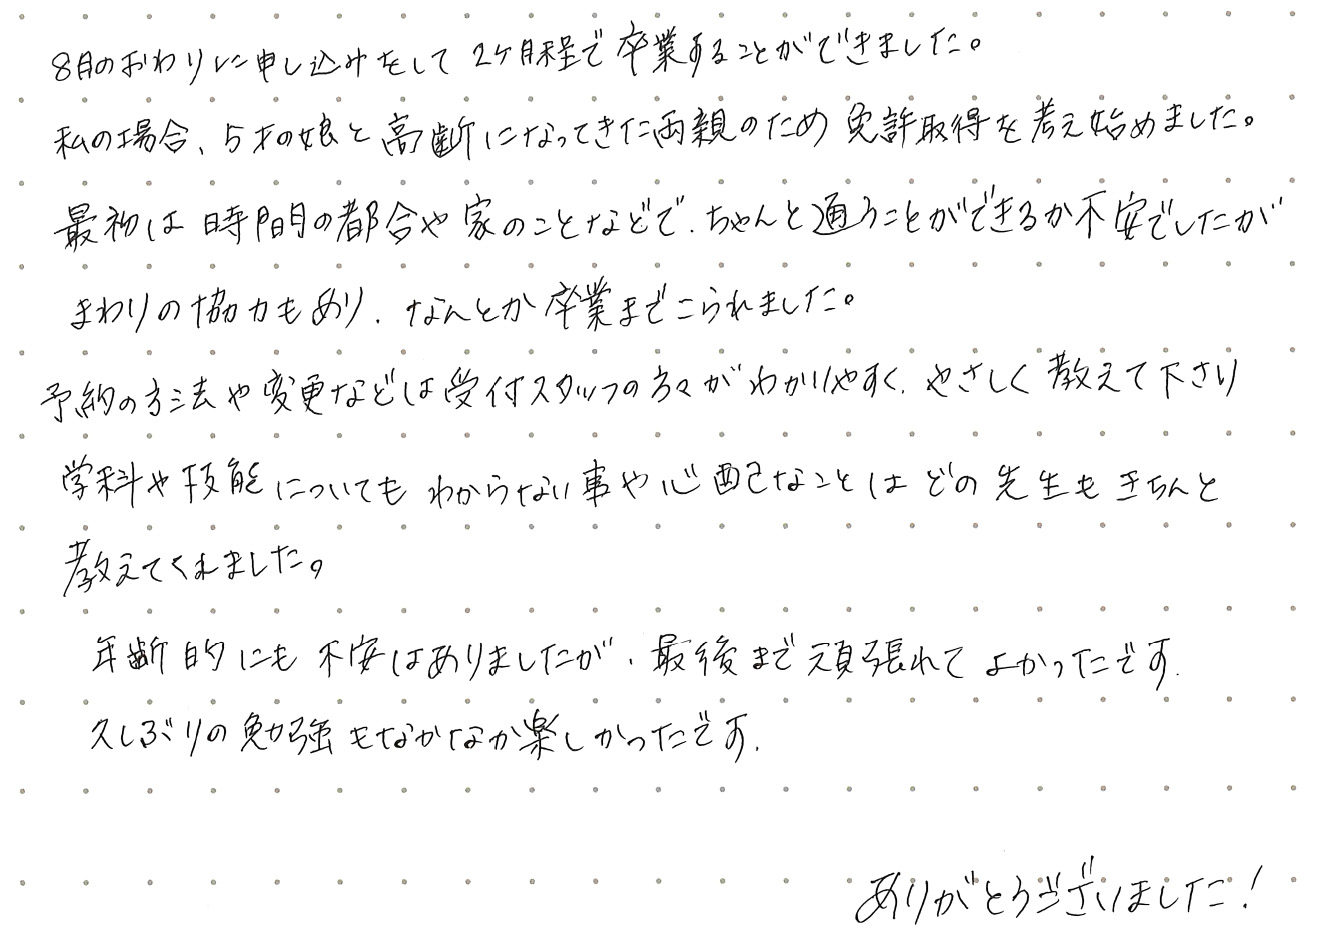 8月のおわりに申し込みをして2ヶ月程で卒業することができました。
私の場合、5才の娘と高齢になってきた両親のため免許取得を考え始めました。
最初は時間の都合や家のことなどで、ちゃんと通うことができるか不安でしたが
まわりの協力もあり、なんとか卒業までこられました。
予約の方法や変更などは受付スタッフの方々がわかりやすく、やさしく教えて下さり
学科や技能についてもわからない事や心配なことはどの先生もきちんと
教えてくれました。
年齢的にも不安はありましたが、最後まで頑張れてよかったです。
久しぶりの勉強もなかなか楽しかったです。
ありがとうございました!